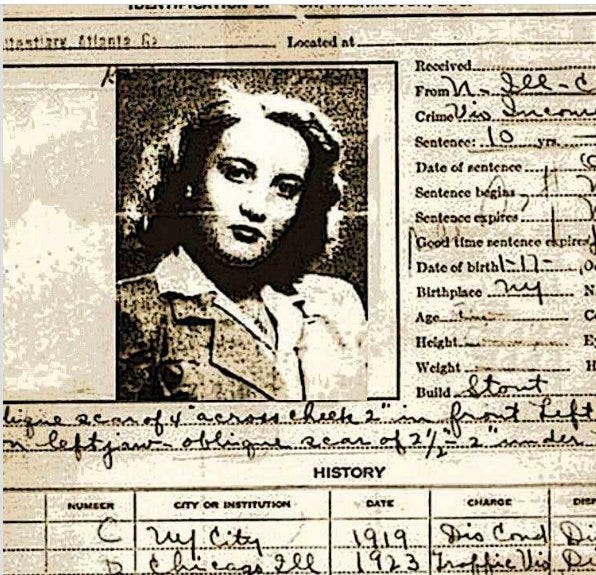 Located at
Received
From N- Ill - C
Crime Vio Income
Sentence: 10 yrs.
Date of sentence
Sentence begins
Sentence expires
Good time sentence expires
Date of birth 1-17-
Birthplace NY
Age
Height
Weight
Build Stout
lique scar of 4" across cheek 2" in front Left
on left jaw - oblique scar of 2 1/2" - 2" under
HISTORY
NUMBER CITY OR INSTITUTION DATE CHARGE
C NY City 1919 Dis Cond Di
Chicago Ill 1923 Traffic Vio Di